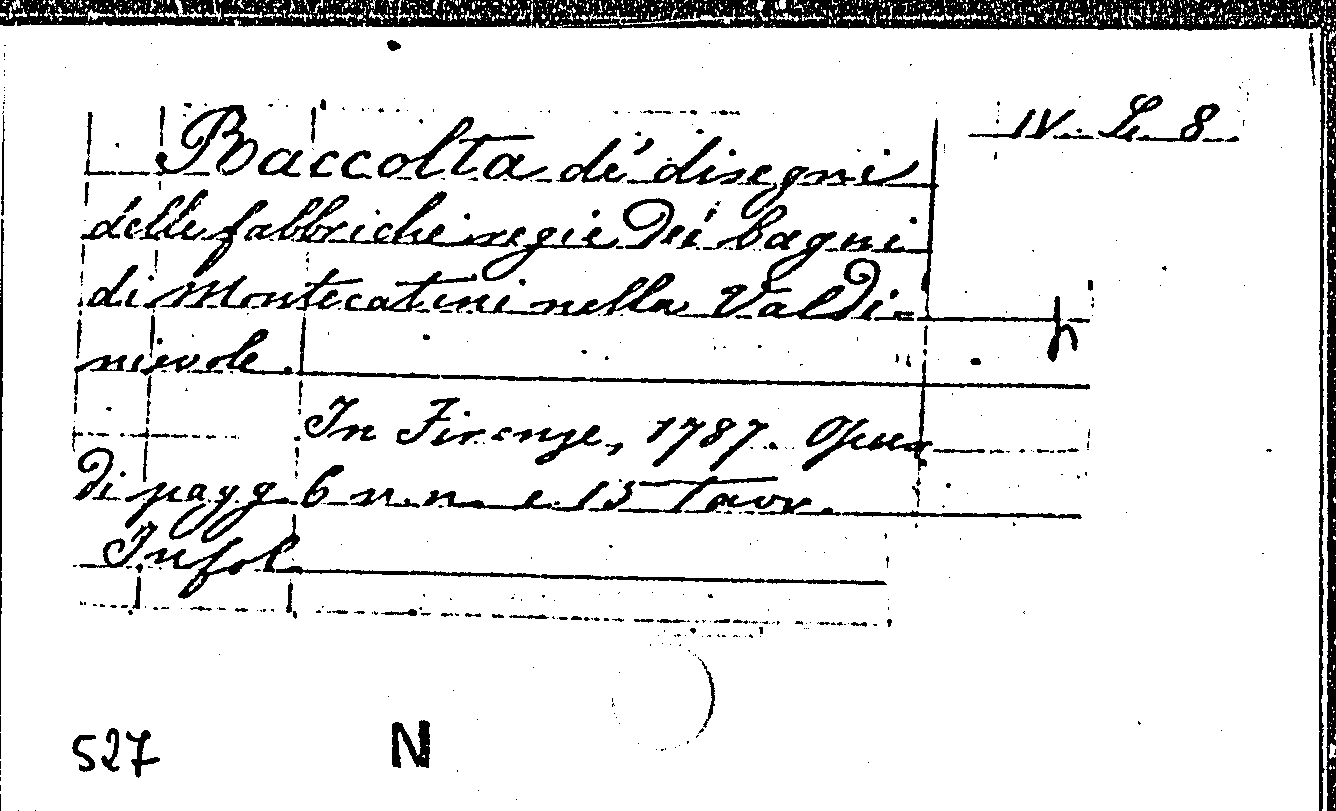 IV. Le. 8
Raccolta de' disegni
delle fabbriche regie dei bagni
di Montecatini nella Valdi=
nievole.
In Firenze, 1787. Opera
di pagg. 6 n. n. e 15 Tavv.
In fol.
527 N